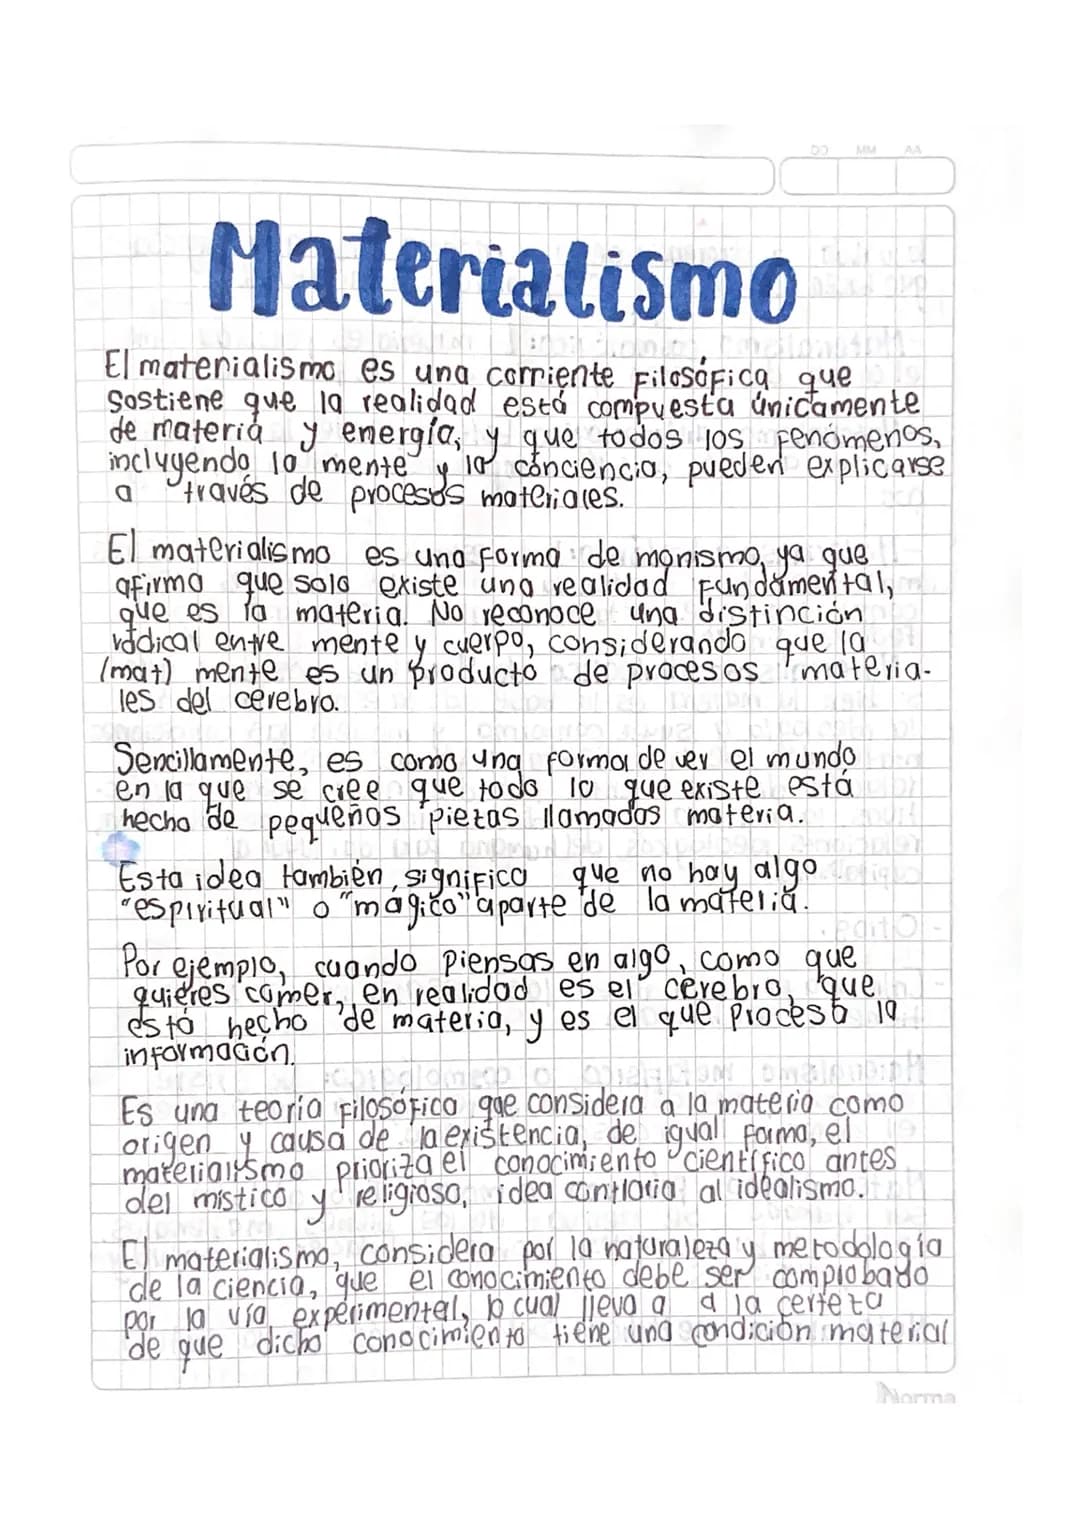 DD MM AA
Materialismo
El materialismo es una corriente filosófica que
sostiene que la realidad está compuesta únicamente
de materia y energía, y que todos los fenómenos,
incluyendo la mente y la conciencia, pueden explicarse
a través de procesos materiales.
El materialismo es una forma de monismo, ya que
afirma que solo existe una realidad fundamental,
que es la materia. No reconoce una distinción
radical entre mente y cuerpo, considerando que la
(mat) mente es un producto de procesos materia-
les del cerebro.
Sencillamente, es como una forma de ver el mundo
en la que se cree que todo lo que existe está
hecho de pequeños piezas llamadas materia.
Esta idea también, significa que no hay algo
"espiritual" o "mágico" aparte de la materia.
Por ejemplo, cuando piensas en algo, como que
quieres comer, en realidad es el cerebro, que
está hecho de materia, y es el que procesa la
información.
Es una teoría filosófica que considera a la materia como
origen y causa de la existencia, de igual forma, el
materialismo prioriza el conocimiento científico antes
del místico y religioso, idea contraria al idealismo.
El materialismo, considera por la naturaleza y metodología
de la ciencia, que el conocimiento debe ser comprobado
por la vía experimental, lo cual lleva a a la certeza
de que dicho conocimiento tiene una condición material
Norma